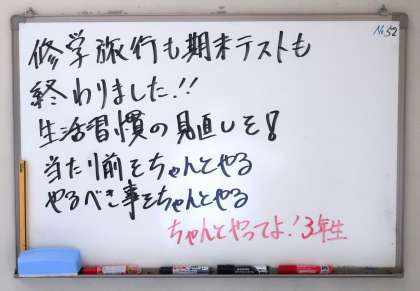 No.52
修学旅行も期末テストも
終わりました!!
生活習慣の見直しを!
当たり前をちゃんとやる
やるべき事をちゃんとやる
ちゃんとやってよ!3年生